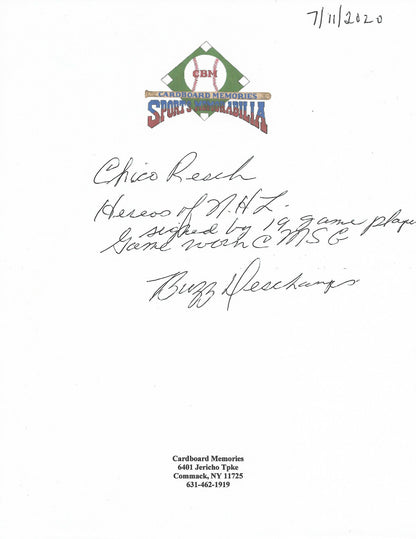 7/11/2020
CBM
CARDBOARD MEMORIES
SPORTS MEMORABILIA
Chico Resch
Heroes of N.H.L.
signed by 19 game playe
Game worn @ MSG
Buzz Deschamps
Cardboard Memories
6401 Jericho Tpke
Commack, NY 11725
631-462-1919